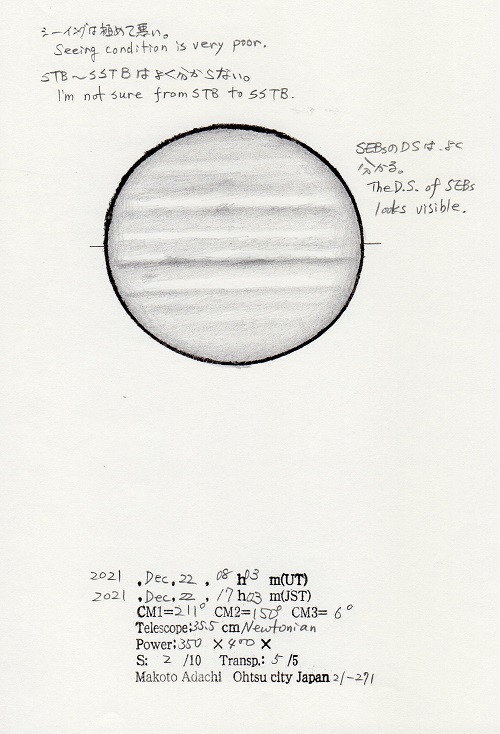 シーイングは極めて悪い。
Seeing condition is very poor.
STB～SSTBはよく分からない。
I'm not sure from STB to SSTB.
SEBsのDSは、よく
分かる。
The D.S. of SEBs
looks visible.
2021 , Dec, 22 , 08 h 03 m(UT)
2021 , Dec, 22 , 17 h 03 m(JST)
CM1=211° CM2=150° CM3= 6°
Telescope:35.5 cm/Newtonian
Power:350 × 400 ×
S: 2 /10 Transp.: 5 /5
Makoto Adachi Ohtsu city Japan 21-271